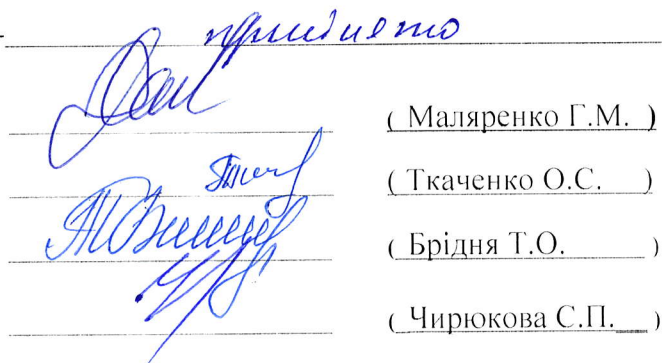 прийнято
( Маляренко Г.М. )
( Ткаченко О.С. )
( Брідня Т.О. )
( Чирюкова С.П. )